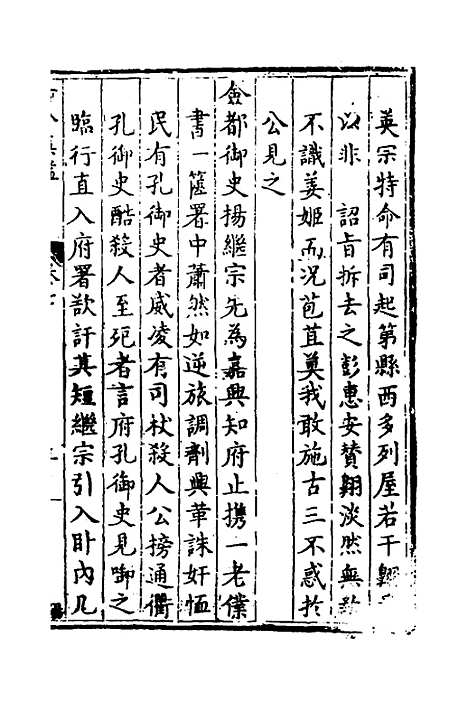 英宗特命有司起第縣西多列屋若干翺
以非　詔旨拆去之彭惠安贊翺淡然無
不識姜姬而況苞苴莫我敢施古三不惑於
公見之
僉都御史楊繼宗先為嘉興知府止携一老僕
書一篋署中蕭然如逆旅調劑興革誅奸恤
民有孔御史者威凌有司杖殺人公搒通衢
孔御史酷殺人至死者言府孔御史見啣之
臨行直入府署欲訐其短繼宗引入臥內几